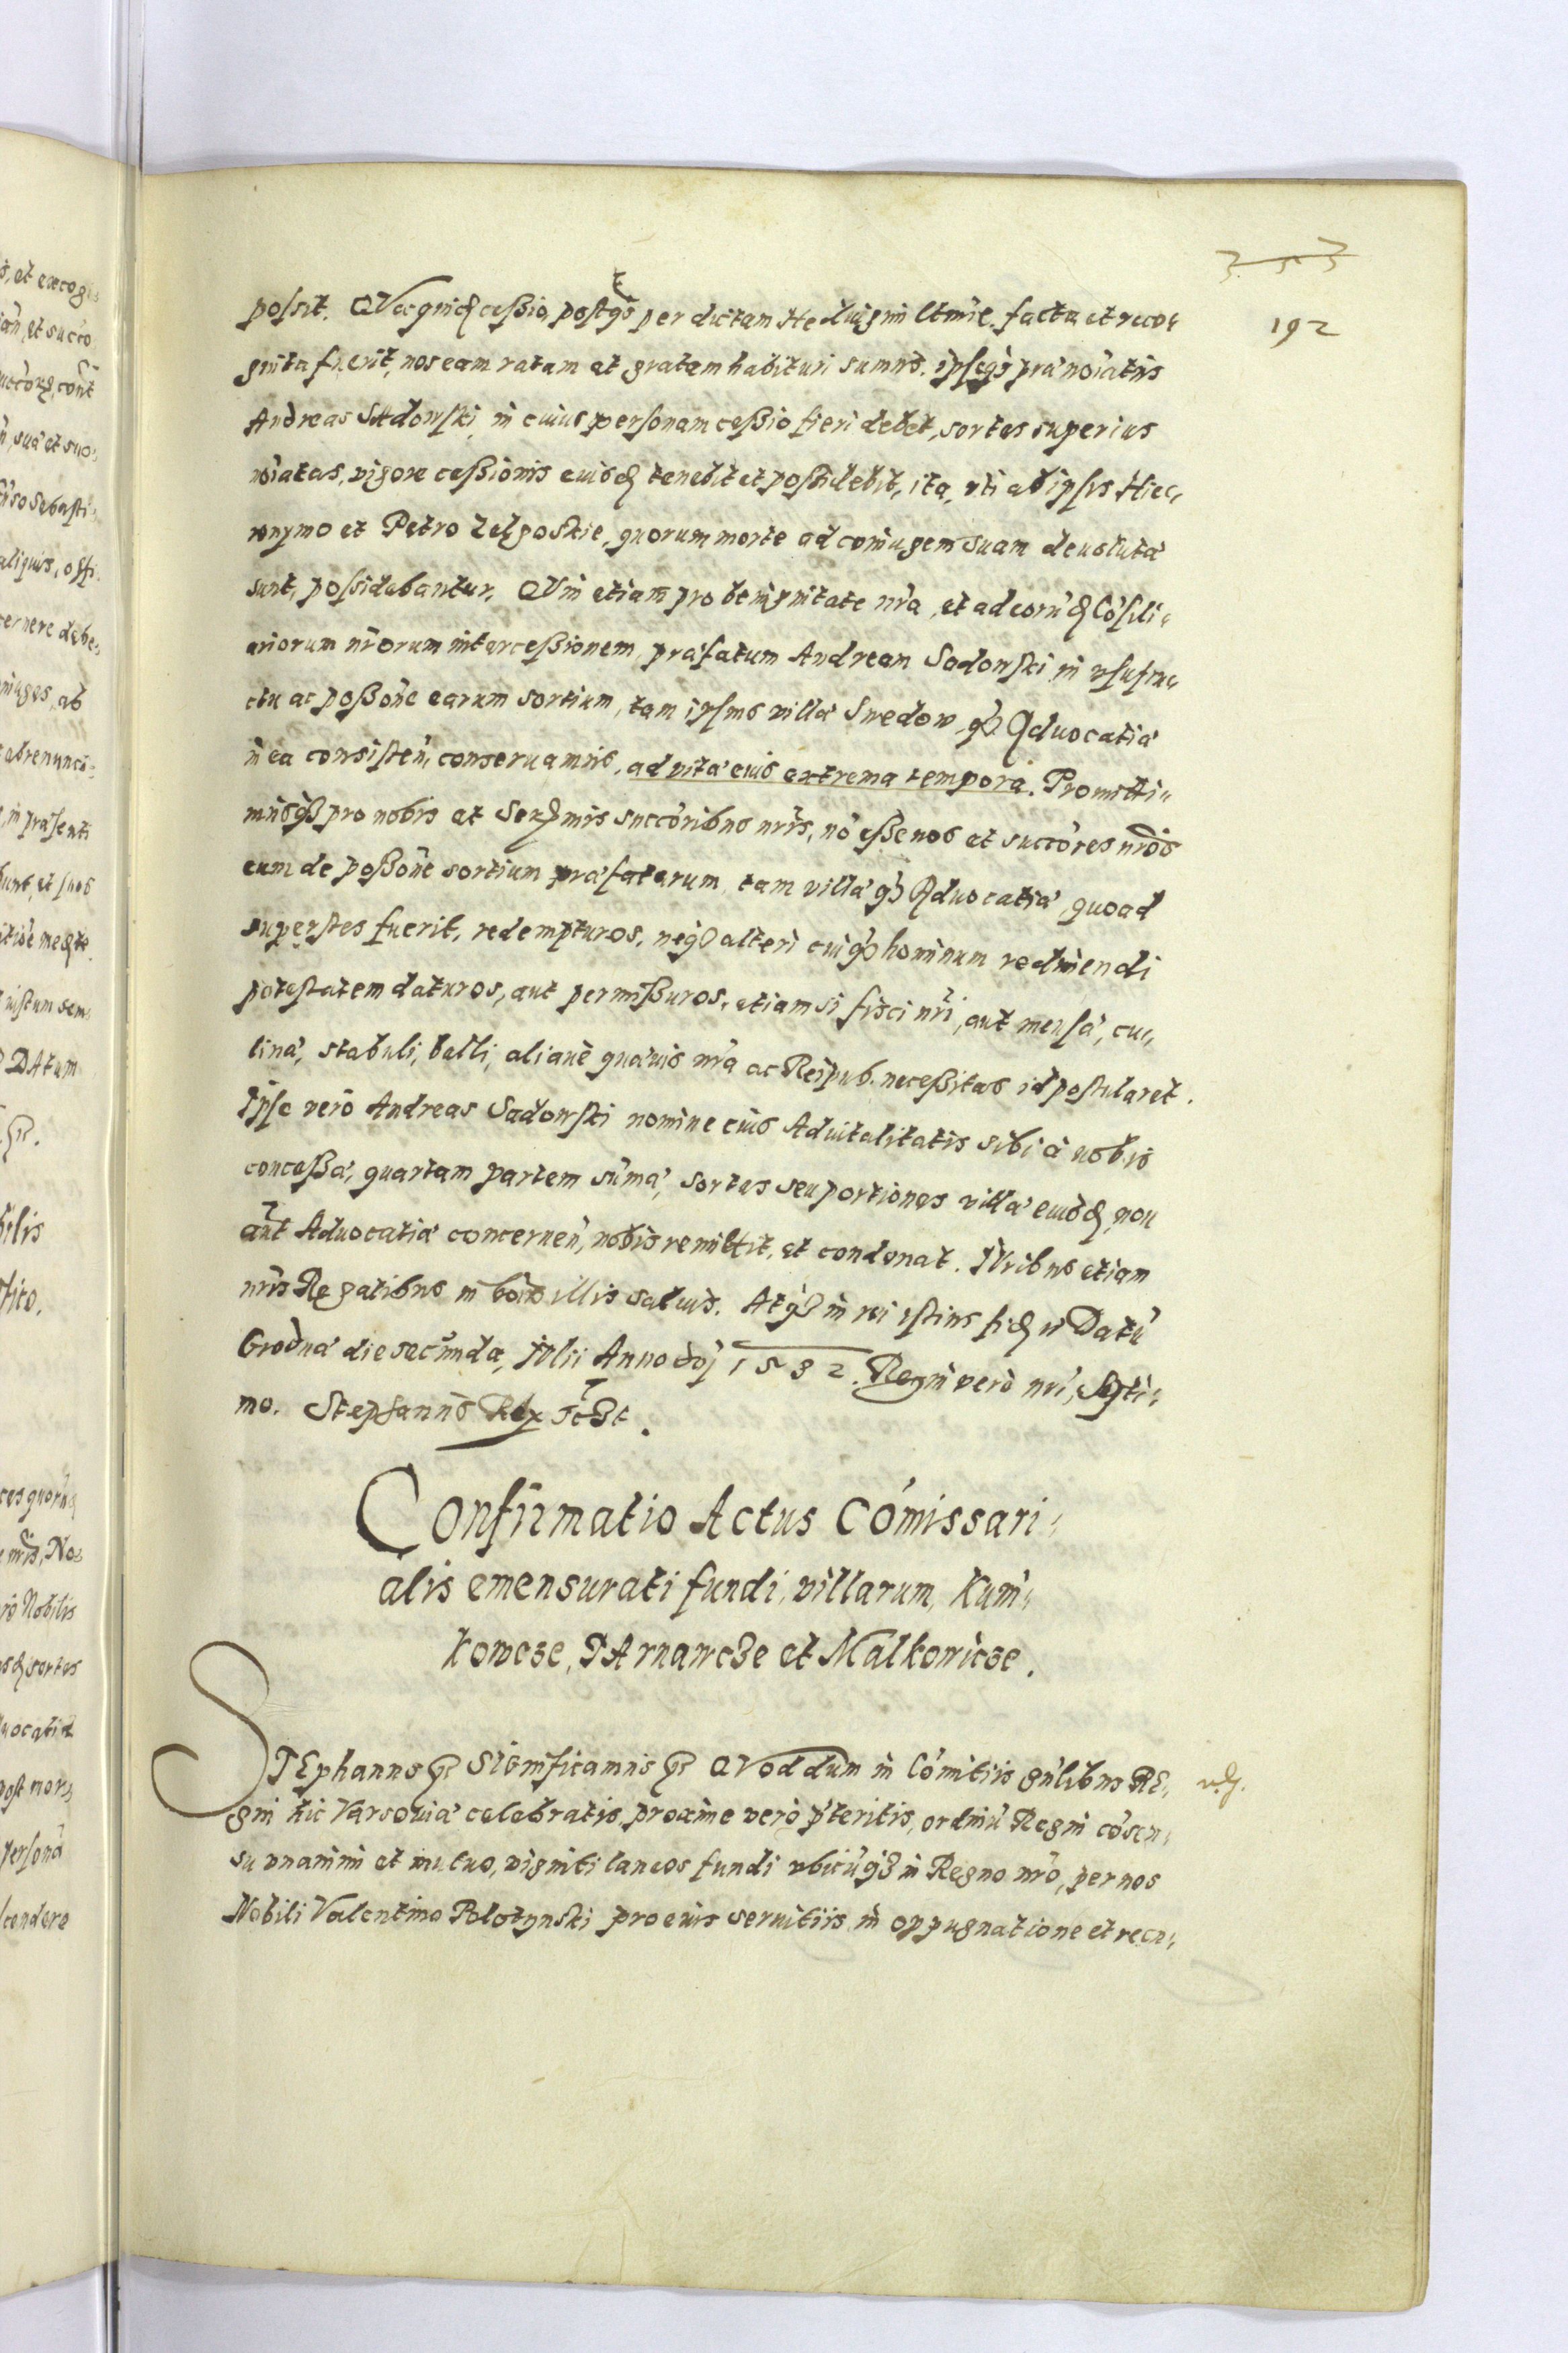 353
192
possit. QVaequid cessio postq̃3 per dictam Heduigim ltm̃ie. facta et reco⸗
gnita fuerit, nos eam ratam et gratam habituri sumus. ipseq3 prænoĩatus
Andreas Sadowski, in cuius personam cessio fieri debet, sortes superius
nõiatas, vigore cessionis eiusd. tenebit et possidebit, ita, vti ab ipsis Hie⸗
ronymo et Petro quorum morte ad coniugem suam deuolutæ
sunt, possidebantur. QVin etiam pro benignitate nr̃a, et ad eorũd. Cõsili⸗
ariorum nr̃orum intercessionem, præfatum Andream Sadowski in vsufru⸗
ctu ac possõne earum sortium, tam ipsius villæ Swedow q3 Aduocatiæ
in ea consisteñ, conseruamus, ad vitæ eius extrema tempora. Promitti⸗
musq3 pro nobis et Ser.mis succõribus nr̃is, nõ esse nos et succõres nr̃os
eum de possõne sortium præfatarum, tam villæ q3 Aduocatiæ, quoad
superstes fuerit, redempturos, neq3 alteri cuiq3 hominum redimendi
potestatem daturos, aut permissuros, etiamsi fisci nr̃i, aut mensæ, cu⸗
linæ, stabuli, belli, aliaue quæuis nr̃a ac Reipub. necessitas id postularet.
Ipse verò Andreas Sadowski nomine eius Aduitalitatis sibi à nobis
concessæ, quartam partem sũmæ, sortes seu portiones villæ eiusd. non
aũt Aduocatiæ concerneñ, nobis remittit, et condonat. IVribus etiam
nr̃is Regalibus in boñis illis saluis. Atq3 in rei istius fid. &c Datũ
Grodnæ die secunda, Julii Anno dñi 1582. Regni verò nr̃i, Septi⸗
mo. Stephanus Rex sc̃3t.
Confirmatio Actus Cõmissari⸗
alis emensurati fundi, villarum, Kum⸗
kowcze, TArnawcze et Malkowicze.
STEphanus &c Significamus &c QVod dum in Cõmitiis gñlibus RE⸗
gni hic Varsouiæ celebratis, proxime verò p̃teritis, ordinũ Regni cõsen⸗
su vnanimi et mutuo, viginti laneos fundi vbicũq3 in Regno nr̃o, per nos
Nobili Valentino Polotynski pro eius seruitiis in oppugnatione et recu⸗